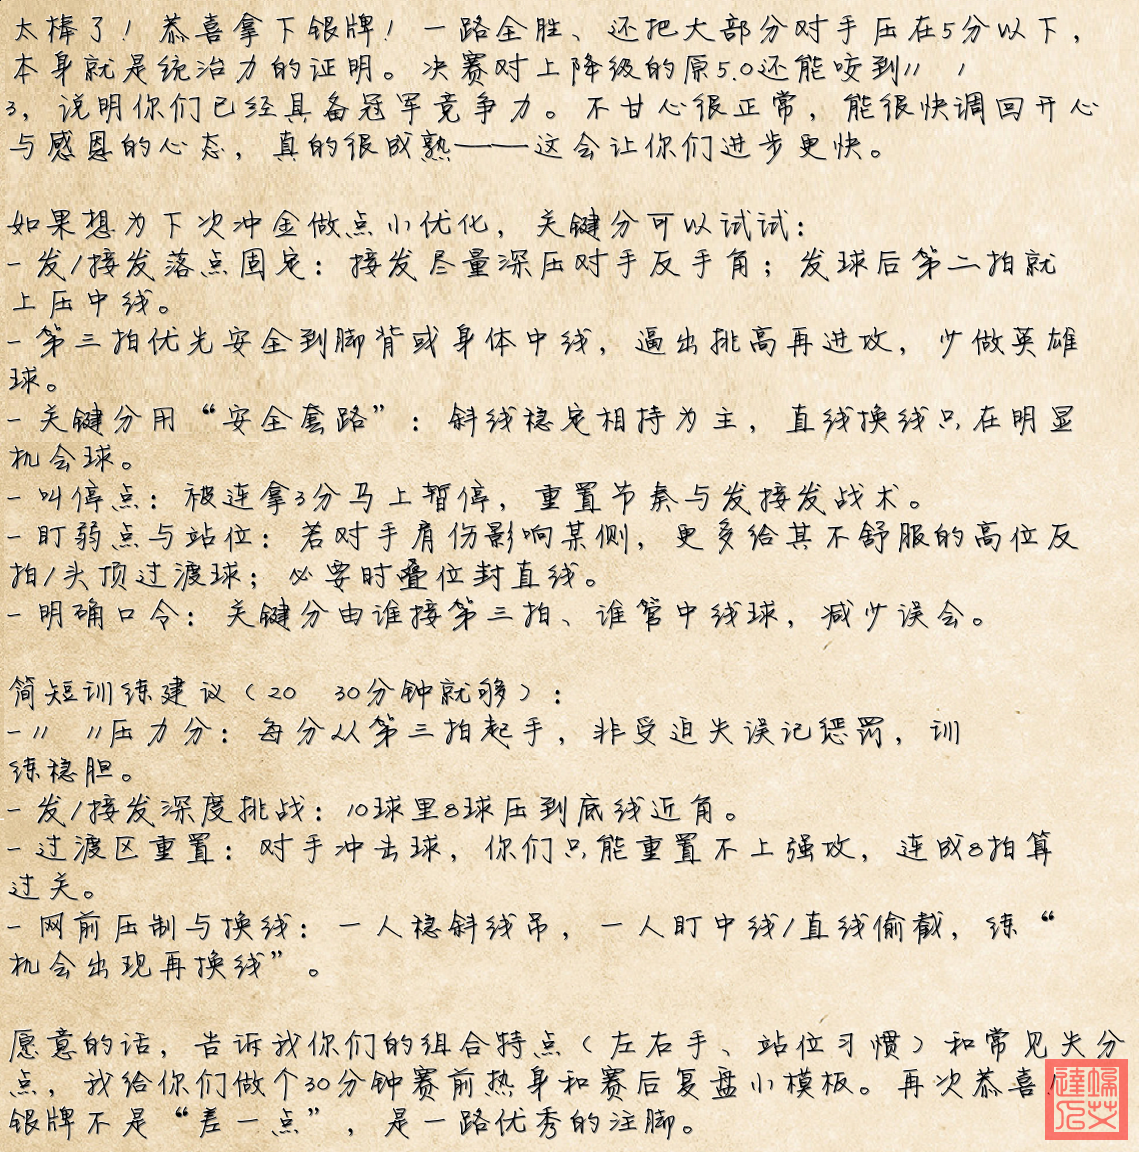 太棒了！恭喜拿下银牌！一路全胜、还把大部分对手压在5分以下，
本身就是统治力的证明。决赛对上降级的原5.0还能咬到11 1
3，说明你们已经具备冠军竞争力。不甘心很正常，能很快调回开心
与感恩的心态，真的很成熟——这会让你们进步更快。
如果想为下次冲金做点小优化，关键分可以试试：
- 发/接发落点固定：接发尽量深压对手反手角；发球后第二拍就
上压中线。
- 第三拍优先安全到脚背或身体中线，逼出挑高再进攻，少做英雄
球。
- 关键分用“安全套路”：斜线稳定相持为主，直线换线只在明显
机会球。
- 叫停点：被连拿3分马上暂停，重置节奏与发接发战术。
- 盯弱点与站位：若对手肩伤影响某侧，更多给其不舒服的高位反
拍/头顶过渡球；必要时叠位封直线。
- 明确口令：关键分由谁接第三拍、谁管中线球，减少误会。
简短训练建议（20 30分钟就够）：
- 11 11压力分：每分从第三拍起手，非受迫失误记惩罚，训
练稳胆。
- 发/接发深度挑战：10球里8球压到底线近角。
- 过渡区重置：对手冲击球，你们只能重置不上强攻，连成8拍算
过关。
- 网前压制与换线：一人稳斜线吊，一人盯中线/直线偷截，练“
机会出现再换线”。
愿意的话，告诉我你们的组合特点（左右手、站位习惯）和常见失分
点，我给你们做个30分钟赛前热身和赛后复盘小模板。再次恭喜
银牌不是“差一点”，是一路优秀的注脚。